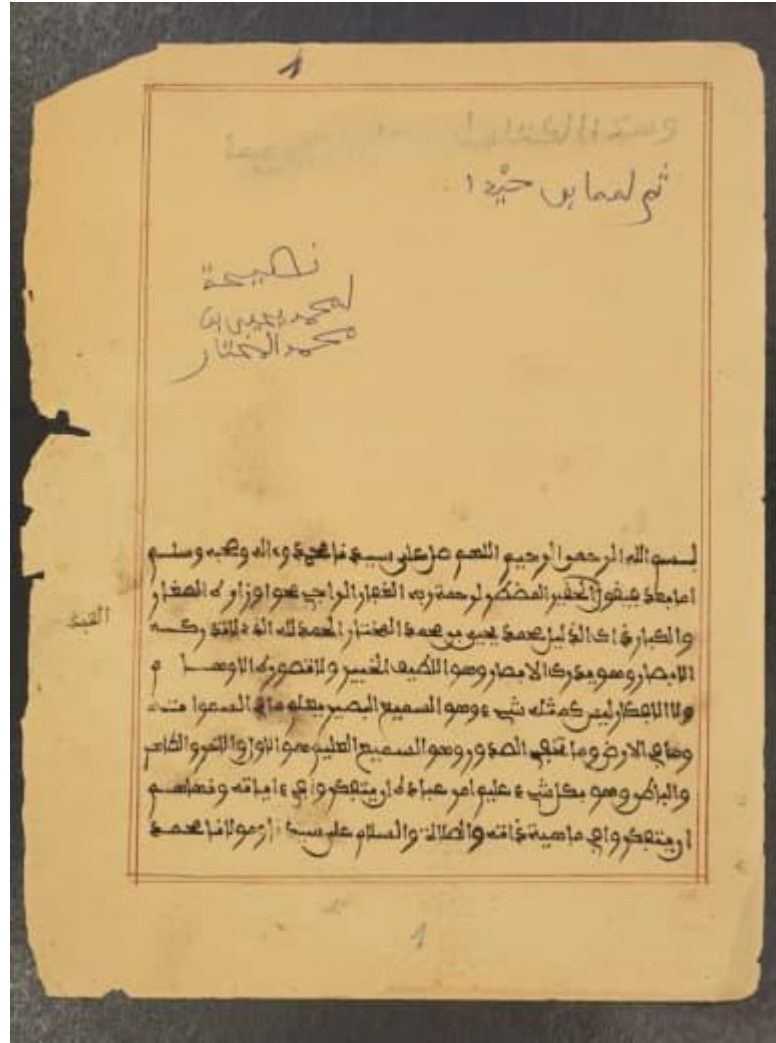 1
وهذا الكتاب
ثم لمما بن حيدا
نصيحة
لمحمد يحيى بن
محمد المختار
بسم الله الرحمن الرحيم اللهم صل على سيدنا محمد وءاله وصحبه وسلم
اما بعد فيقول الحقير المضطر لرحمة ربه الغفار الراجي محو اوزاره الصغار
العبد
والكبار ذاك الذليل محمد يحيى بن محمد المختار الحمد لله الذي لا تدركه
الابصار وهو يدرك الابصار وهو اللطيف الخبير ولا تصوره الاوهام
ولا الافكار ليس كمثله شيء وهو السميع البصير يعلم ما في السموات
وما في الارض وما تخفي الصدور وهو السميع العليم هو الاول والاخر والظاهر
والباطن وهو بكل شيء عليم امر عباده ان يتفكروا في ءاياته ونهاهم
ان يتفكروا في ماهية ذاته والصلاة والسلام على سيدنا ومولانا محمد
1